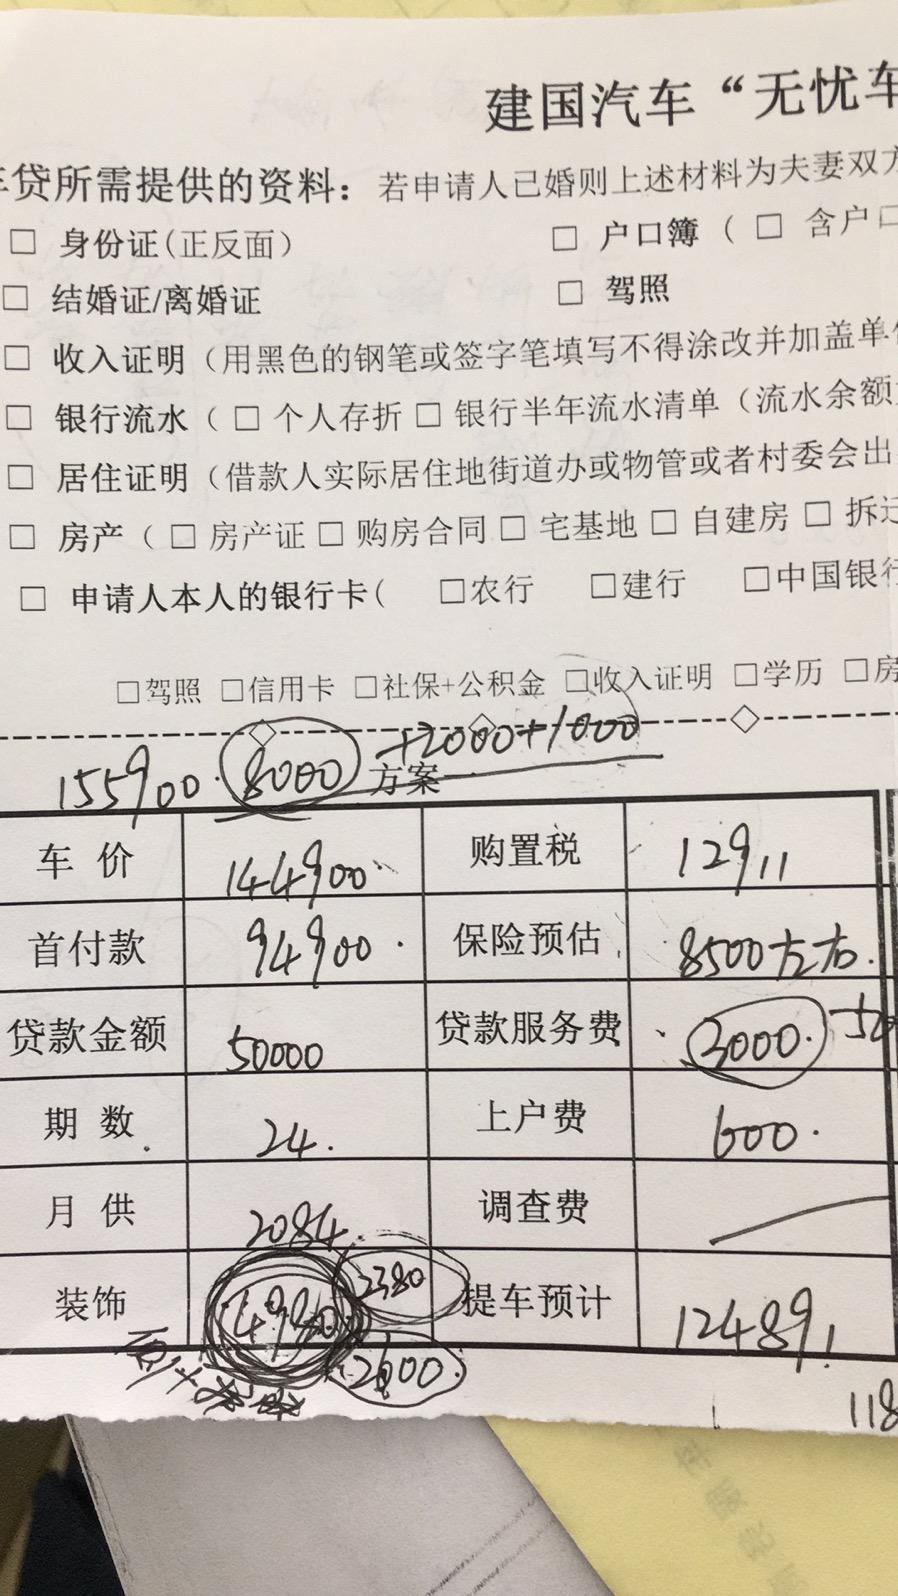 建国汽车“无忧车
车贷所需提供的资料：若申请人已婚则上述材料为夫妻双方
□ 身份证(正反面） □ 户口簿（ □ 含户口
□ 结婚证/离婚证 □ 驾照
□ 收入证明（用黑色的钢笔或签字笔填写不得涂改并加盖单
□ 银行流水（ □ 个人存折 □ 银行半年流水清单（流水余额
□ 居住证明（借款人实际居住地街道办或物管或者村委会出
□ 房产（ □ 房产证 □ 购房合同 □ 宅基地 □ 自建房 □ 拆迁
□ 申请人本人的银行卡( □农行 □建行 □中国银行
□驾照 □信用卡 □社保+公积金 □收入证明 □学历 □房
155900. 8000 +2000+1000
方案一
车 价 144900. 购置税 12911
首付款 94900. 保险预估 8500左右.
贷款金额 50000 贷款服务费 3000.
期 数 24. 上户费 600.
月 供 2084 调查费
装饰 4980 3380 提车预计 124891
2600
118